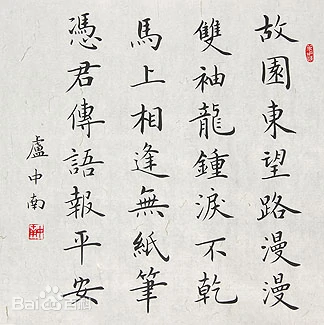 故園東望路漫漫
雙袖龍鍾淚不乾
馬上相逢無紙筆
憑君傳語報平安
盧中南
Bai百科